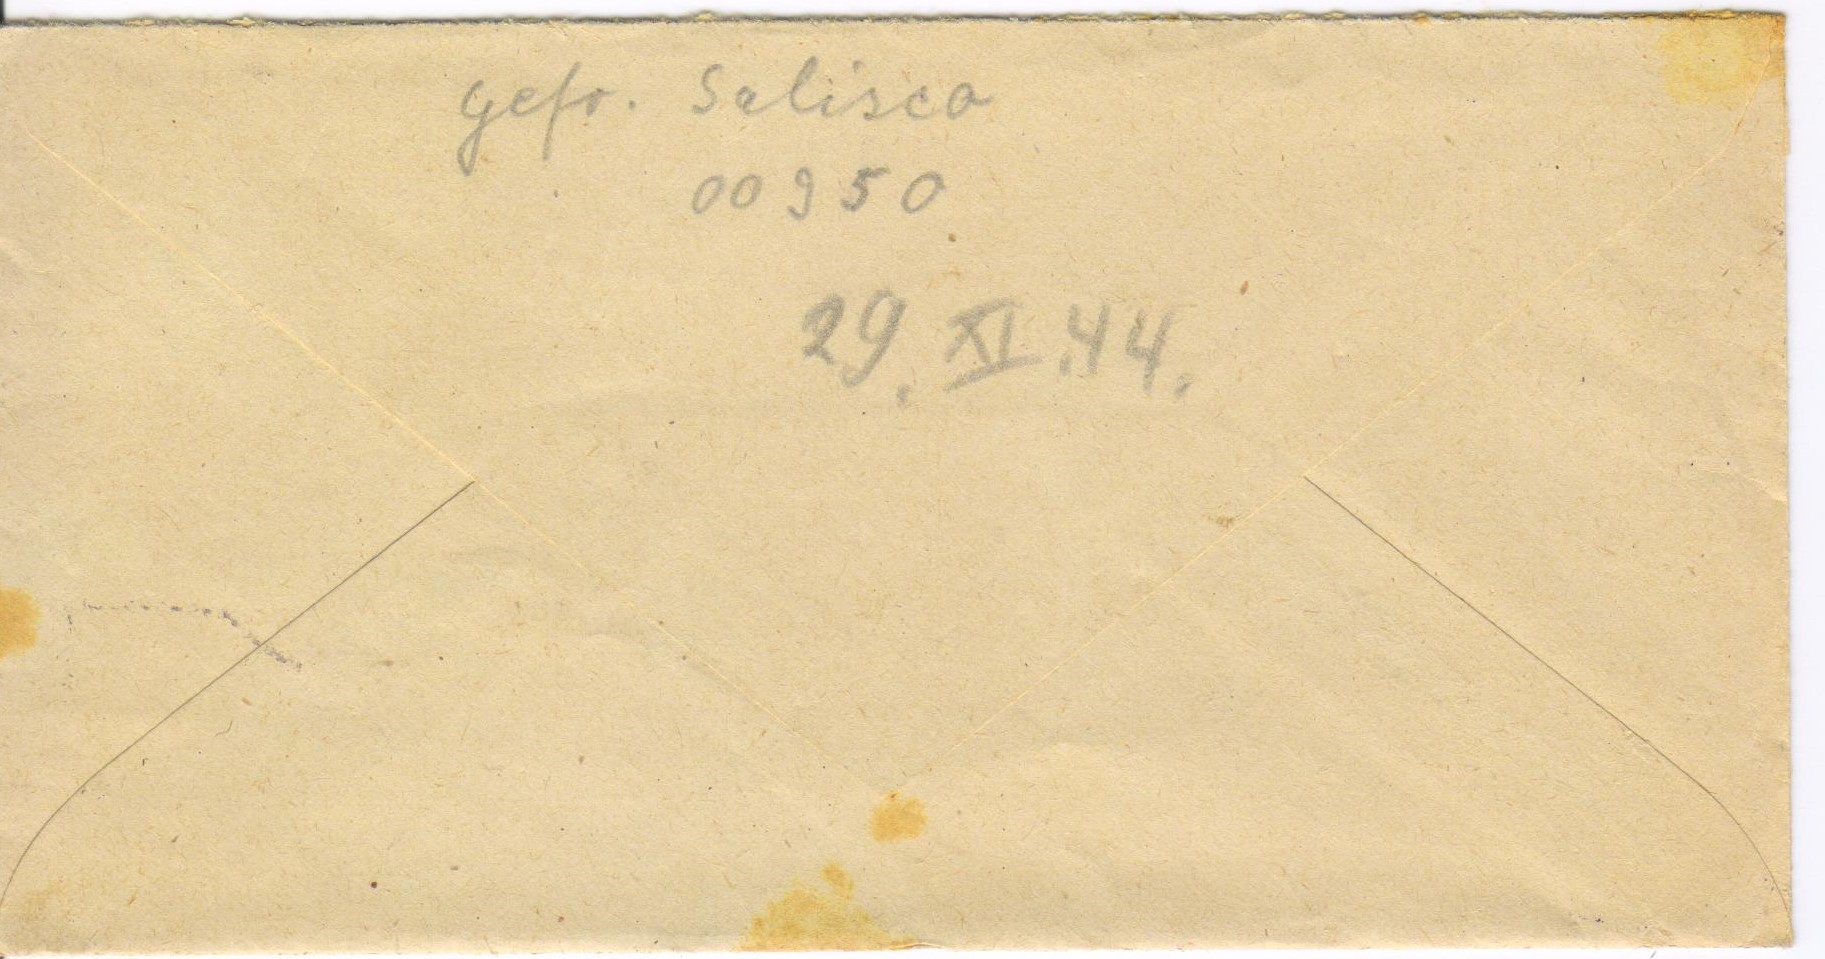 gefr. Salisco
00950
29. XI. 44.